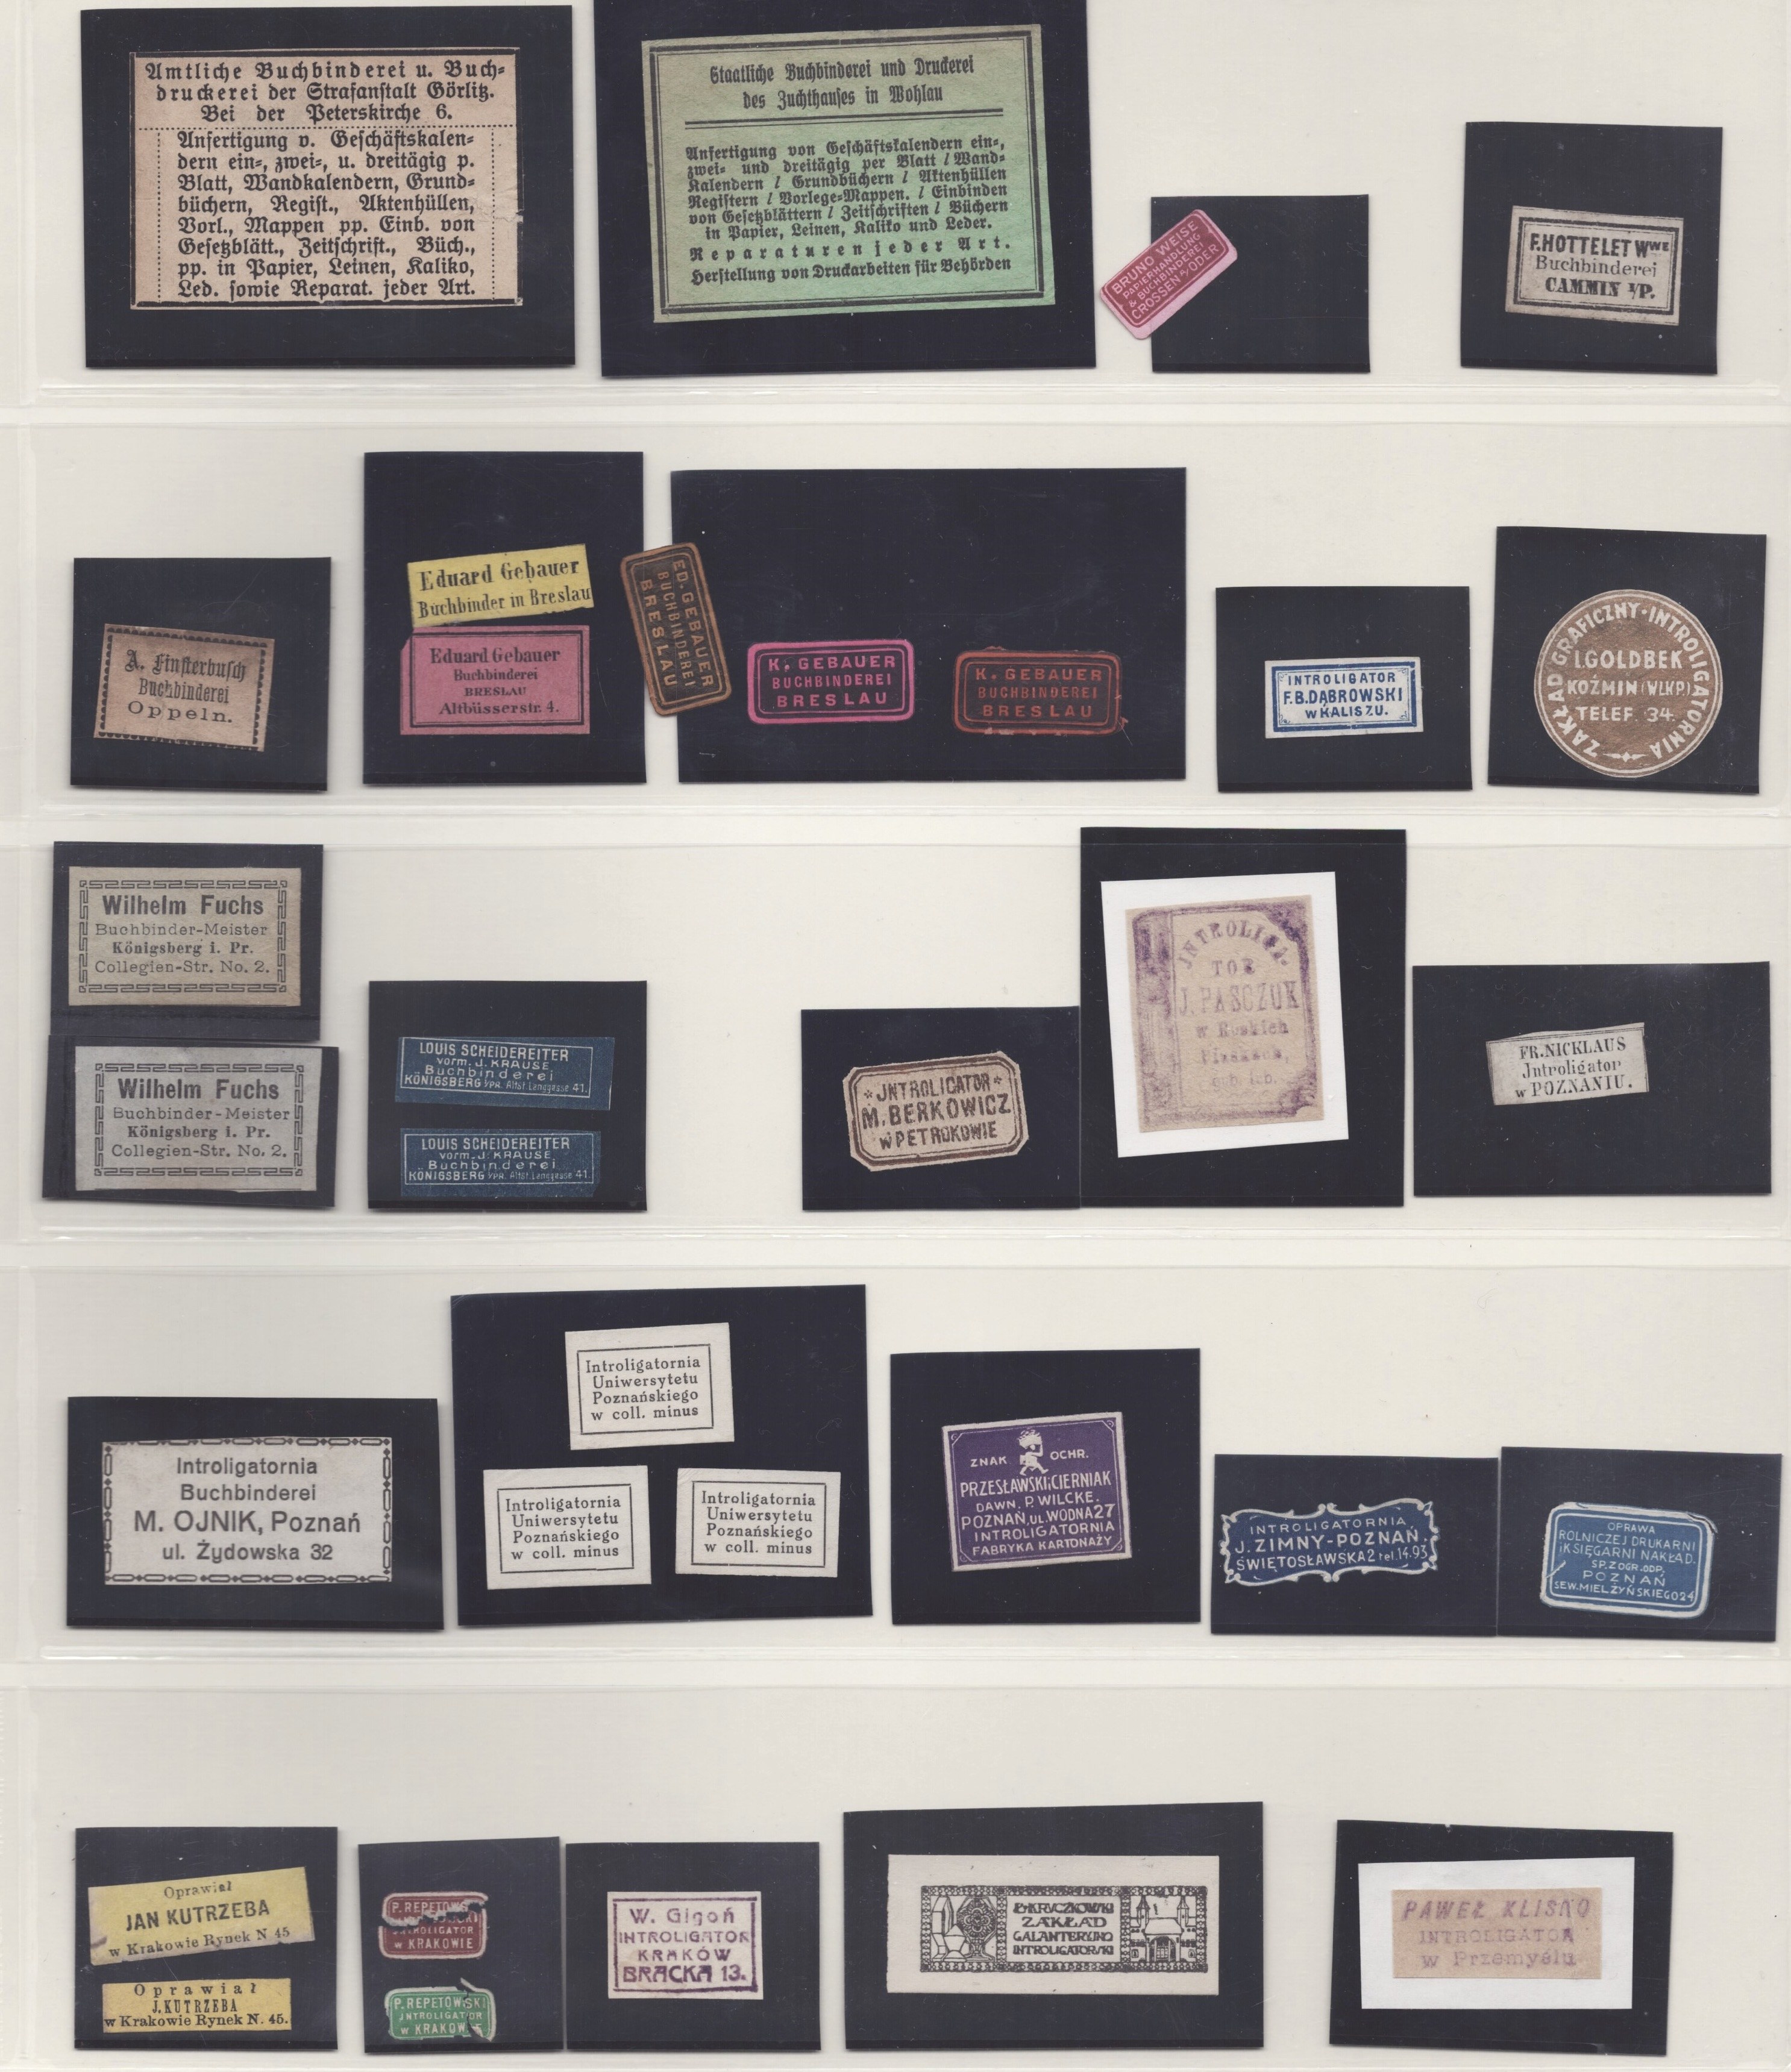 Amtliche Buchbinderei u. Buch=
druckerei der Strafanstalt Görlitz.
Bei der Peterskirche 6.
Anfertigung v. Geschäftskalen=
dern ein=, zwei=, u. dreitägig p.
Blatt, Wandkalendern, Grund=
büchern, Regist., Aktenhüllen,
Vorl., Mappen pp. Einb. von
Gesetzblätt., Zeitschrift., Büch.,
pp. in Papier, Leinen, Kaliko,
Led. sowie Reparat. jeder Art.
Staatliche Buchbinderei und Druckerei
des Zuchthauses in Wohlau
Anfertigung von Geschäftskalendern ein=,
zwei= und dreitägig per Blatt / Wand=
Kalendern / Grundbüchern / Aktenhüllen
Registern / Vorlege=Mappen. / Einbinden
von Gesetzblättern / Zeitschriften / Büchern
in Papier, Leinen, Kaliko und Leder.
Reparaturen jeder Art.
Herstellung von Druckarbeiten für Behörden
BRUNO WEISE
PAPIERHANDLUNG
& BUCHBINDEREI
CROSSEN a/ODER
F. HOTTELET Wwe
Buchbinderei
CAMMIN i/P.
A. Finsterbusch
Buchbinderei
Oppeln.
Eduard Gebauer
Buchbinder in Breslau
Eduard Gebauer
Buchbinderei
BRESLAU
Altbüsserstr. 4.
ED. GEBAUER
BUCHBINDEREI
BRESLAU
K. GEBAUER
BUCHBINDEREI
BRESLAU
K. GEBAUER
BUCHBINDEREI
BRESLAU
INTROLIGATOR
F.B. DĄBROWSKI
w KALISZU.
ZAKŁAD GRAFICZNY-INTROLIGATORNIA
I. GOLDBEK
KOŹMIN (WLKP.)
TELEF. 34.
Wilhelm Fuchs
Buchbinder-Meister
Königsberg i. Pr.
Collegien-Str. No. 2.
Wilhelm Fuchs
Buchbinder-Meister
Königsberg i. Pr.
Collegien-Str. No. 2.
LOUIS SCHEIDEREITER
vorm. J. KRAUSE
Buchbinderei
KÖNIGSBERG i/PR. Altst. Langgasse 41.
LOUIS SCHEIDEREITER
vorm. J. KRAUSE
Buchbinderei
KÖNIGSBERG i/PR. Altst. Langgasse 41.
* JNTROLIGATOR *
M. BERKOWICZ
w PETROKOWIE
INTROLIGA-
TOR
J. PASCZUK
w Ruskich
Piaskach,
FR. NICKLAUS
Jntroligator
w POZNANIU.
Introligatornia
Buchbinderei
M. OJNIK, Poznań
ul. Żydowska 32
Introligatornia
Uniwersytetu
Poznańskiego
w coll. minus
Introligatornia
Uniwersytetu
Poznańskiego
w coll. minus
Introligatornia
Uniwersytetu
Poznańskiego
w coll. minus
ZNAK OCHR.
PRZESŁAWSKI i CIERNIAK
DAWN. P. WILCKE.
POZNAŃ, ul. WODNA 27
INTROLIGATORNIA
FABRYKA KARTONAŻY
INTROLIGATORNIA
J. ZIMNY-POZNAŃ.
ŚWIĘTOSŁAWSKA 2 tel. 14.93
OPRAWA
ROLNICZEJ DRUKARNI
i KSIĘGARNI NAKŁAD.
SP. Z OGR. ODP.
POZNAŃ
SEW. MIELŻYŃSKIEGO 24
Oprawiał
JAN KUTRZEBA
w Krakowie Rynek N 45
Oprawiał
J. KUTRZEBA
w Krakowie Rynek N. 45.
P. REPETOWSKI
INTROLIGATOR
w KRAKOWIE
P. REPETOWSKI
INTROLIGATOR
w KRAKOWIE
W. Gigoń
INTROLIGATOR
KRAKÓW
BRACKA 13.
KRUCZKOWSKI
ZAKŁAD
GALANTERYJNO
INTROLIGATORSKI
PAWEŁ KLISKO
INTROLIGATOR
w Przemyślu